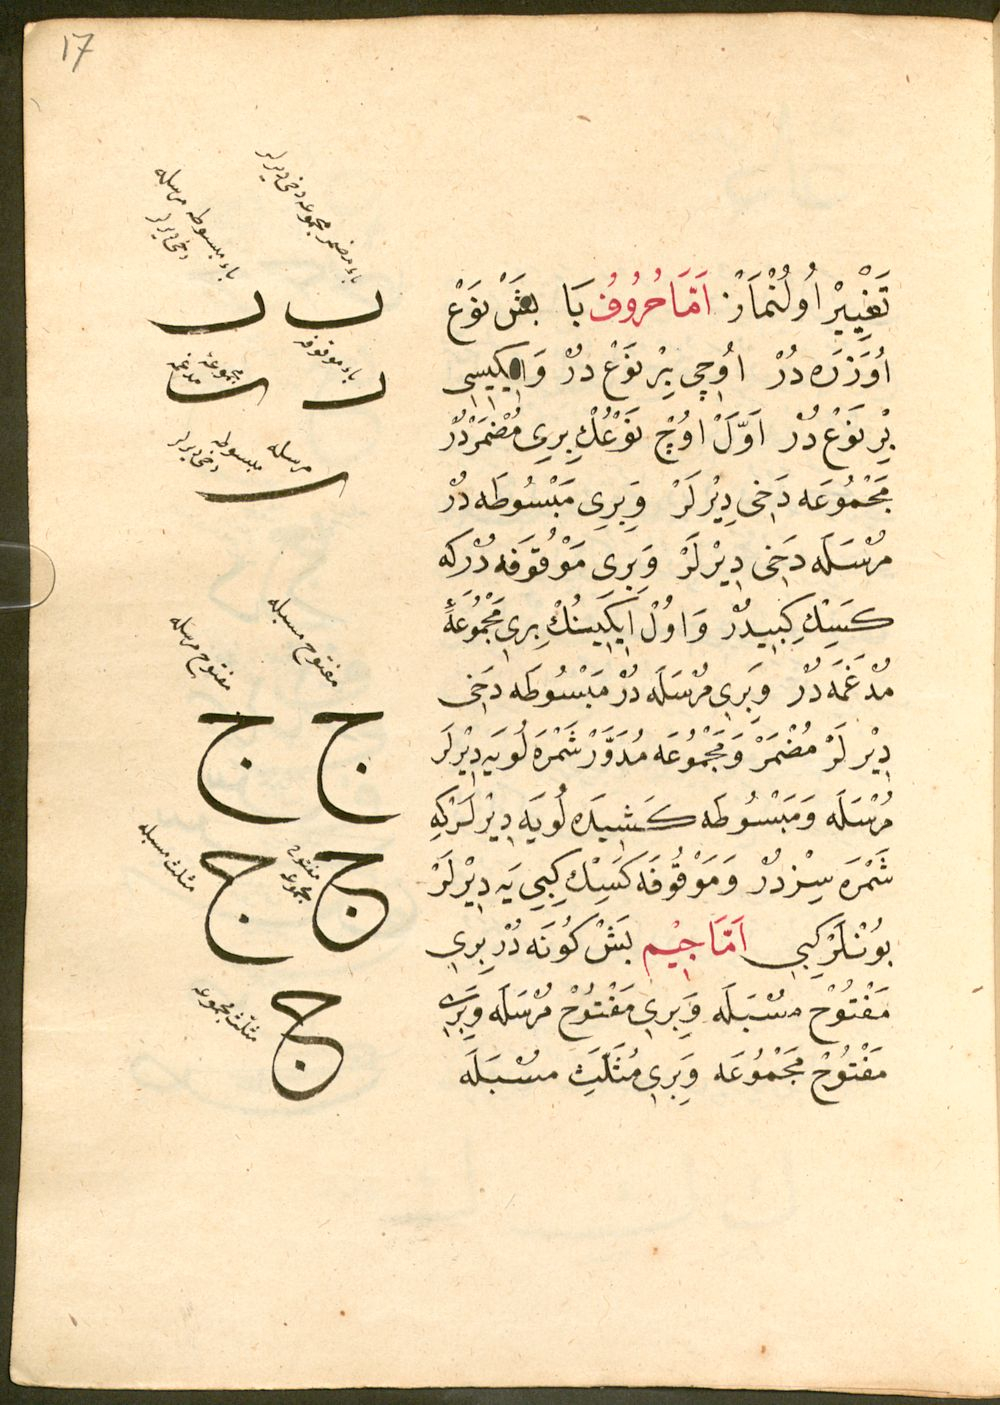 17
تَغْيِيرْ اُولُنْمَازْ اَمَّا حُرُوفُ بَا بَشْ نَوْعْ
اُوَزَرَه دُرْ اُوچِى بِرْ نَوْعْ دُرْ وَايكِيسِى
بِرْ نَوْعْ دُرْ اَوَّلْ اوُچْ نَوْعُكْ بِرِى مُضْمَرْدُرْ
مَجْمُوعَه دَخِى دِيْرْلَرْ وَبِرِى مَبْسُوطَه دُرْ
مُرْسَلَه دَخِى دِيْرْلَرْ وَبِرِى مَوْقُوفَه دُرْكه
كَسِكْ كِبِيدُرْ وَاوُلْ اِيكِيَسِنُكْ بِرِى مَجْمُوعَۀ
مُدْغَمَه دُرْ وَبِرِى مُرْسَلَه دُرْ مَبْسُوطَه دَخِى
دِيْرْلَرْ مُضْمَرْ وَمَجْمُوعَه مُدَوَّرْ شَمْرَه لُويَه دِيْرْلَر
مُرْسَلَه وَمَبْسُوطَه كَشِيدَه لُويَه دِيْرْلَرْكِه
شَمْرَه سِزْدُرْ وَمَوْقُوفَه كَسِكْ كِبِى يَه دِيْرْلَرْ
بُونْلَرْكِبِى اَمَّا جِيْم بَشْ كُونَه دُرْ بِرِى
مَفْتُوحْ مُسْبَلَه وَبِرِى مَفْتُوحْ مُرْسَلَه وَبِرِى
مَفْتُوحْ مَجْمُوعَه وَبِرِى مُثَلَّثْ مُسْبَلَه
باء مضمر مجموعه دخى ديرلر
باء مبسوطه مرسله
دخى ديرلر
ٮ ٮ
باء موقوفه
مجموعۀ
مدغمه
ٮ ٮ
مرسله
مبسوطه
دخى ديرلر
ٮ
مفتوح مسبله
مفتوح مرسله
ج ج
مفتوح
مجموعه
مثلث مسبله
ج ج
مثلث مجموعه
ج